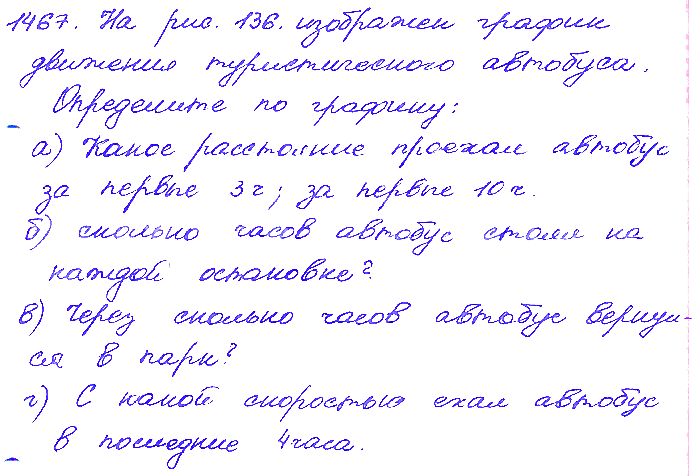 1467. На рис. 136. изображен график
движения туристического автобуса.
Определите по графику:
а) Какое расстояние проехал автобус
за первые 3ч; за первые 10ч.
б) сколько часов автобус стоял на
каждой остановке?
в) Через сколько часов автобус вернул-
ся в парк?
г) С какой скоростью ехал автобус
в последние 4часа.